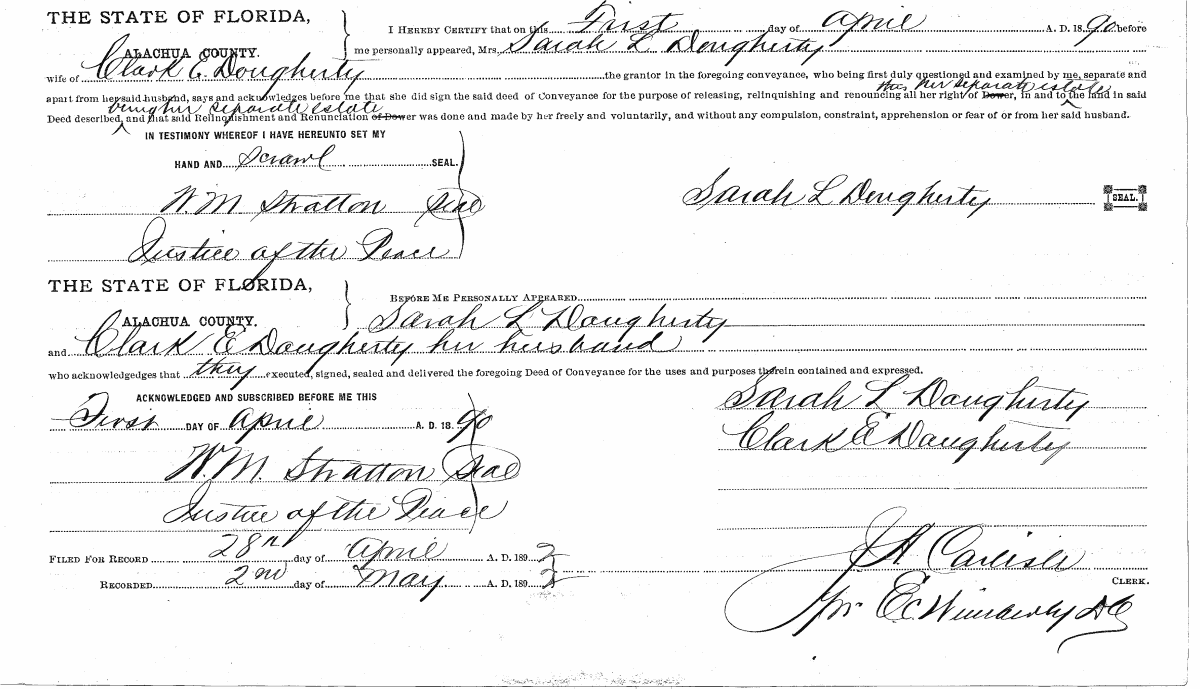 THE STATE OF FLORIDA,
ALACHUA COUNTY.
I HEREBY CERTIFY that on this First day of April A. D. 1890 before
me personally appeared, Mrs. Sarah L Dougherty
wife of Clark E. Dougherty the grantor in the foregoing conveyance, who being first duly questioned and examined by me, separate and
was her separate estate
apart from her said husband, says and acknowledges before me that she did sign the said deed of Conveyance for the purpose of releasing, relinquishing and renouncing all her right of Dower, in and to the land in said
being her separate estate
Deed described, and that said Relinquishment and Renunciation of Dower was done and made by her freely and voluntarily, and without any compulsion, constraint, apprehension or fear of or from her said husband.
IN TESTIMONY WHEREOF I HAVE HEREUNTO SET MY
HAND AND Scrawl SEAL.
W. M Stratton Seal
Sarah L Dougherty SEAL.
Justice of the Peace
THE STATE OF FLORIDA,
ALACHUA COUNTY.
BEFORE ME PERSONALLY APPEARED
Sarah L Dougherty
and Clark E Dougherty her husband
who acknowledgedges that they executed, signed, sealed and delivered the foregoing Deed of Conveyance for the uses and purposes therein contained and expressed.
ACKNOWLEDGED AND SUBSCRIBED BEFORE ME THIS
First DAY OF April A. D. 1890
Sarah L Dougherty
Clark E Dougherty
W. M. Stratton Seal
Justice of the Peace
FILED FOR RECORD 28th day of April A. D. 1892
RECORDED 2nd day of May A. D. 1892
J A Carlisle
CLERK.
pr E. C. Wimberly DC